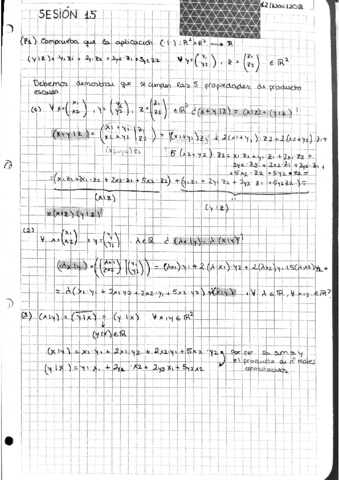 SESIÓN 15
12/Nov/2018
(P1) Comprueba que la aplicación ( | ) : R² x R² → R
(y|z) = y₁z₁ + 2y₁z₂ + 2y₂z₁ + 5y₂z₂ ∀ y = (y₁ y₂), z = (z₁ z₂) ∈ R²
Debemos demostrar que se cumplen las 5 propiedades de producto
escalar.
(1) ∀ x = (x₁ x₂), y = (y₁ y₂), z = (z₁ z₂) ∈ R² ¿(x+y|z) = (x|z) + (y|z)?
(x+y|z) = (x₁+y₁ x₂+y₂ | z₁ z₂) = (x₁+y₁)z₁ + 2(x₁+y₁)z₂ + 2(x₂+y₂)z₁ +
5(x₂+y₂)z₂ = x₁z₁ + y₁z₁ + 2x₁z₂ +
+ 5x₂z₂ + 5y₂z₂ =
= (x₁z₁ + 2x₁z₂ + 2x₂z₁ + 5x₂z₂) + (y₁z₁ + 2y₁z₂ + 2y₂z₁ + 5y₂z₂) =
(x|z) (y|z)
= (x|z) + (y|z)
(2)
∀ x = (x₁ x₂), y = (y₁ y₂), λ ∈ R ¿(λx|y) = λ(x|y)?
(λx|y) = = (λx₁)y₁ + 2(λx₁)y₂ + 2(λx₂)y₁ + 5(λx₂)y₂ =
= λ(x₁y₁ + 2x₁y₂ + 2x₂y₁ + 5x₂y₂) = λ(x|y), ∀ λ ∈ R, ∀ x,y ∈ R²
(3) (x|y) = (y|x) = (y|x) ∀ x,y ∈ R²
(y|x) ∈ R
(x|y) = x₁y₁ + 2x₁y₂ + 2x₂y₁ + 5x₂y₂
(y|x) = y₁x₁ + 2y₁x₂ + 2y₂x₁ + 5y₂x₂
por ser la suma y
el producto de nº reales
conmutativos